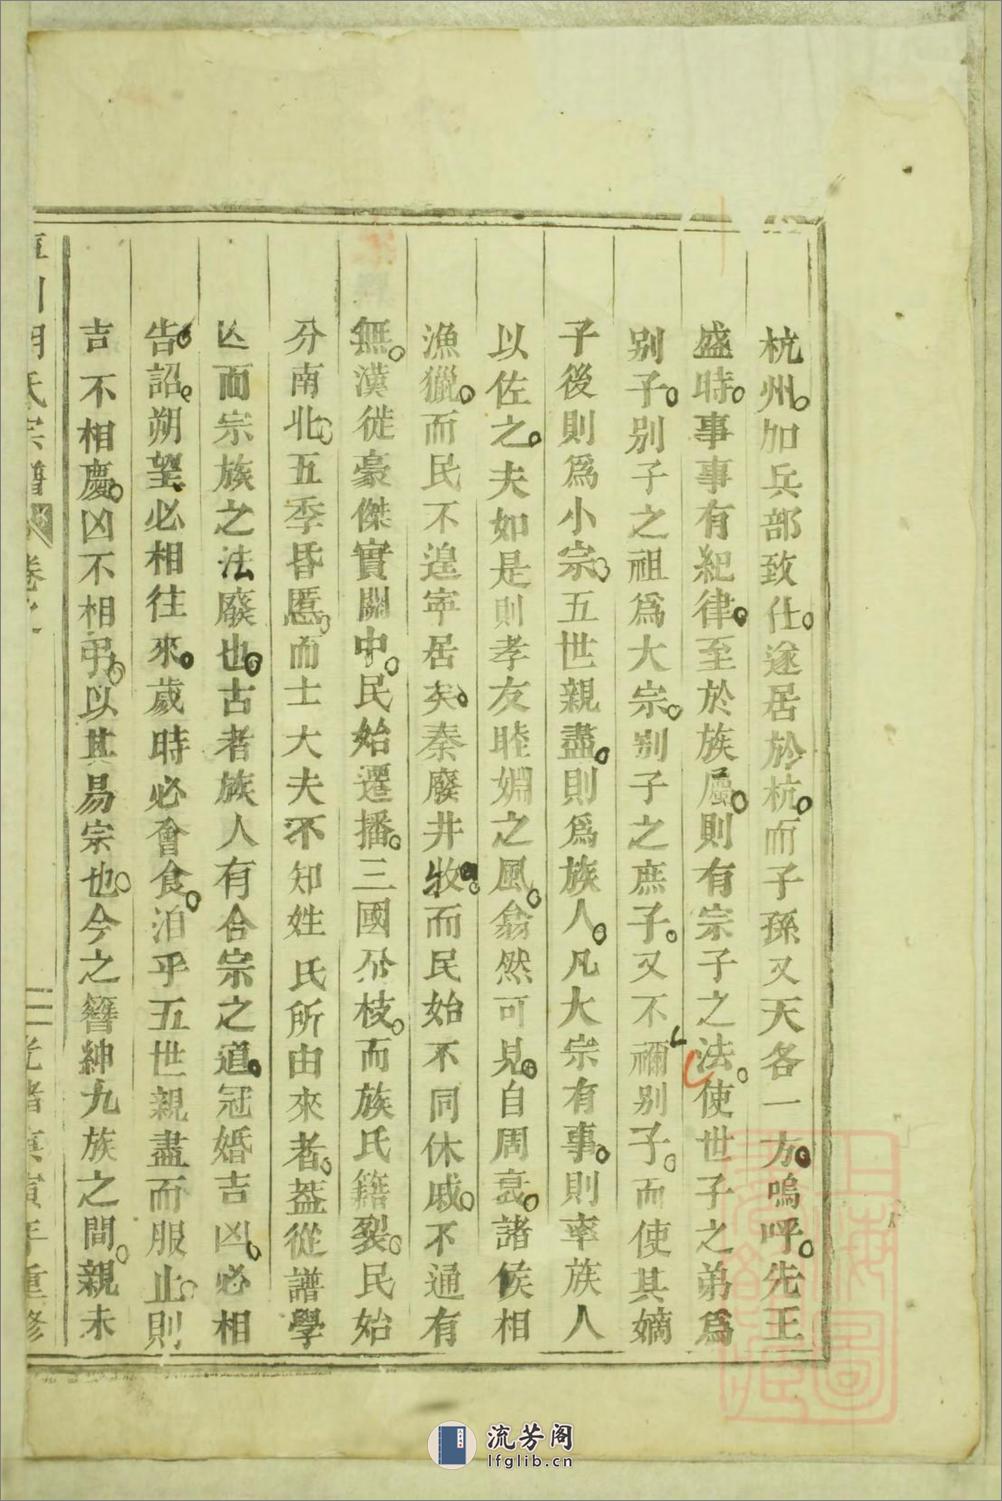 杭州加兵部致仕遂居於杭而子孫又天各一方嗚呼先王
盛時事事有紀律至於族屬則有宗子之法使世子之弟爲
别子别子之祖爲大宗别子之庶子又不禰别子而使其嫡
子後則爲小宗五世親盡則爲族人凡大宗有事則率族人
以佐之夫如是則孝友睦婣之風翕然可見自周衰諸侯相
漁獵而民不遑寕居矣秦廢井牧而民始不同休戚不通有
無漢徙豪傑實關中民始遷播三國分枝而族氏籍裂民始
分南北五季昏慝而士大夫不知姓氏所由來者葢從譜學
亾而宗族之法廢也古者族人有合宗之道冠婚吉凶必相
告詔朔望必相往來歲時必會食洎乎五世親盡而服止則
吉不相慶凶不相弔以其易宗也今之簪紳九族之間親未
氏宗譜 卷 二 光緒庚寅年重修
上海圖書館藏
流芳阁
lfglib.cn